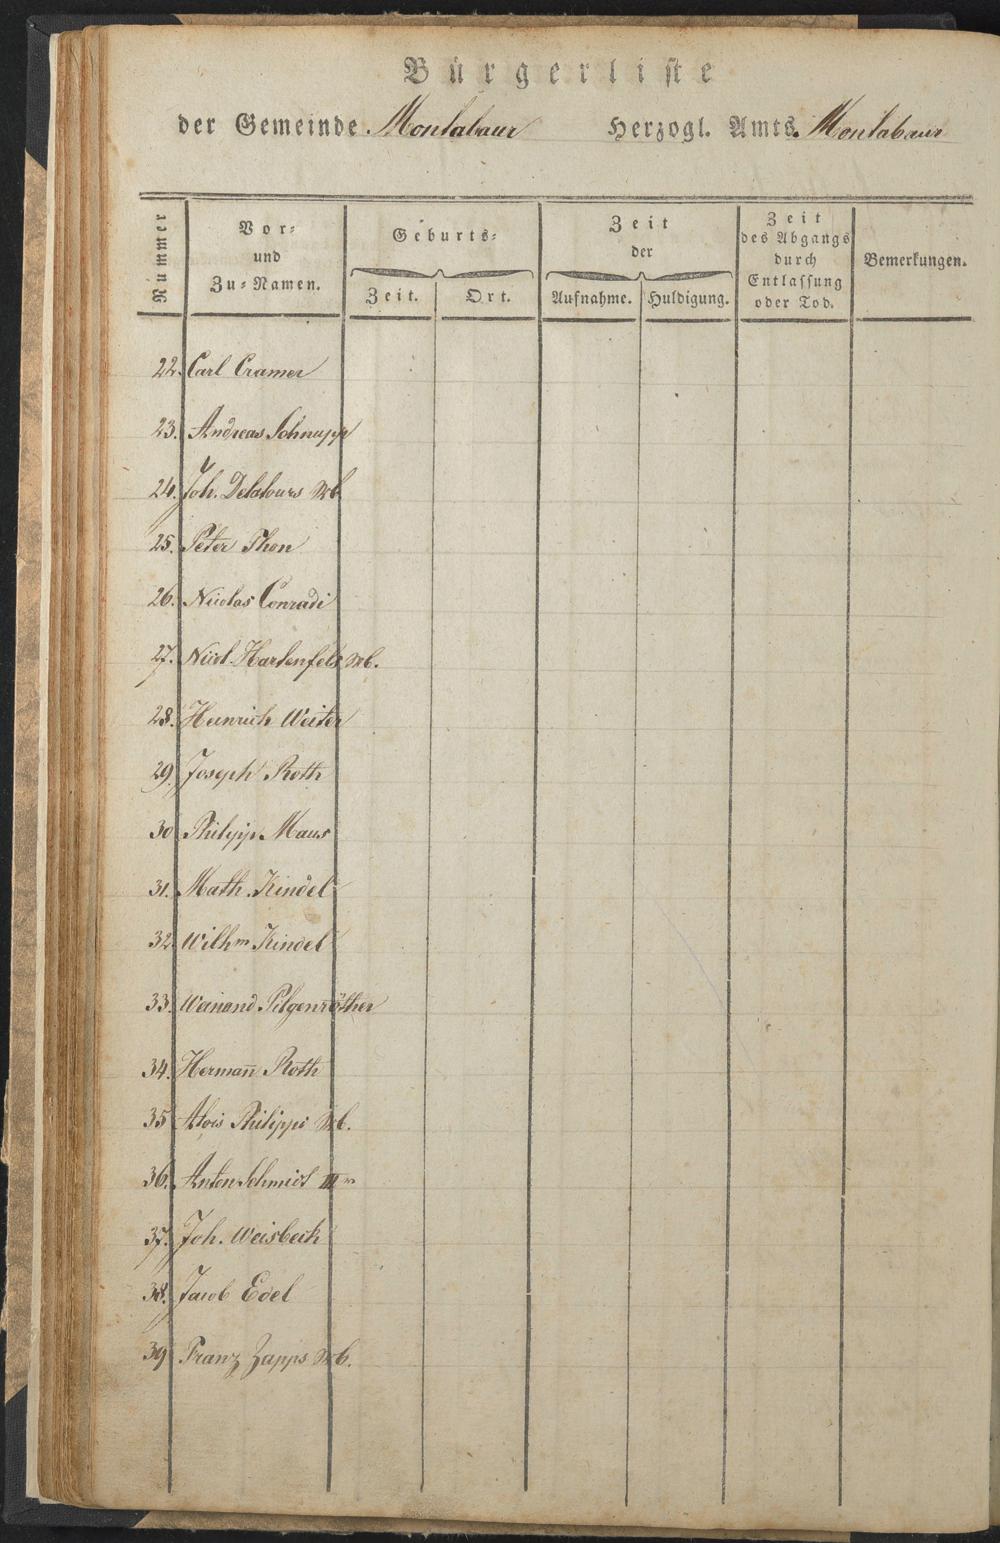 Bürgerliste
der Gemeinde Montabaur Herzogl. Amts Montabaur
Nummer
Vor-
und
Zu-Namen.
Geburts-
Zeit. Ort.
Zeit
der
Aufnahme. Huldigung.
Zeit
des Abgangs
durch
Entlassung
oder Tod.
Bemerkungen.
22. Carl Cramer
23. Andreas Schnupp
24. Joh. Wb
25. Peter Thon
26. Nicolas Conradi
27. Nicol. Hartenfels Wb.
28. Heinrich Weiter
29. Joseph Roth
30 Philipp Maus
31. Math. Kindel
32. Wilhm Kindel
33. Weinand Pilgenröther
34. Hermañ Roth
35 Alois Philippi Wb.
36. Anton Schmidt IIIr
37. Joh. Weisbeck
38. Jacob Edel
39 Franz Zapps Wb.